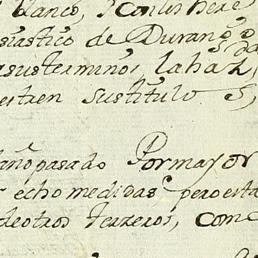 blanco, y con los here
siastico de Durango
asus terminos la haz,
esttien sustitulo s,
año pasado Por mayor
echo medidas pero esta
de otros terzeros, com